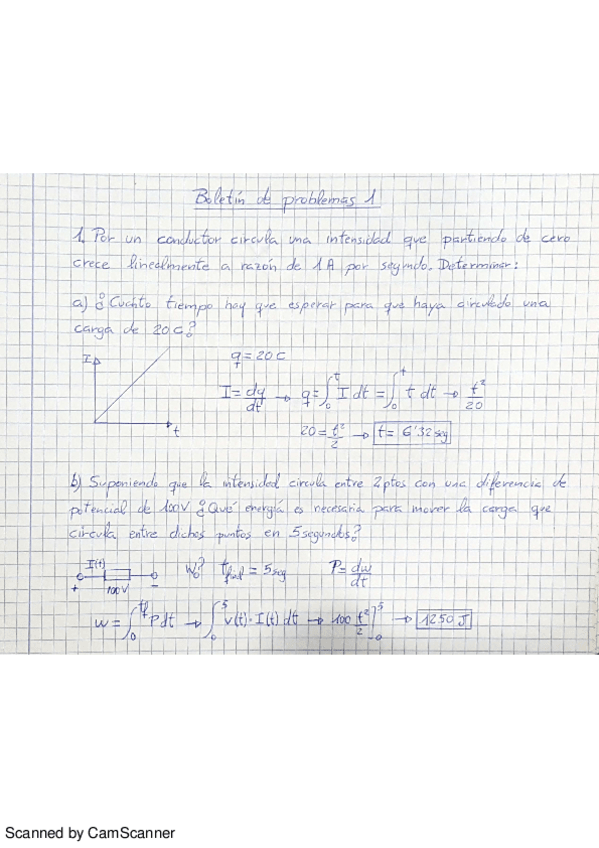 Boletín de problemas 1
1. Por un conductor circula una intensidad que partiendo de cero
crece linealmente a razón de 1A por segundo. Determinar:
a) ¿Cuánto tiempo hay que esperar para que haya circulado una
carga de 20C?
I
t
q = 20 C
I = dq/dt → q = ∫₀ᵗ I dt = ∫₀ᵗ t dt → t²/20
20 = t²/2 → t = 6'32 seg
b) Suponiendo que la intensidad circula entre 2 ptos con una diferencia de
potencial de 100V ¿Qué energía es necesaria para mover la carga que
circula entre dichos puntos en 5 segundos?
I(t)
+ 100V −
W? t_final = 5 seg P = dw/dt
w = ∫₀^tf P dt → ∫₀⁵ v(t)·I(t) dt → 100 t²/2]₀⁵ → 1250 J
Scanned by CamScanner